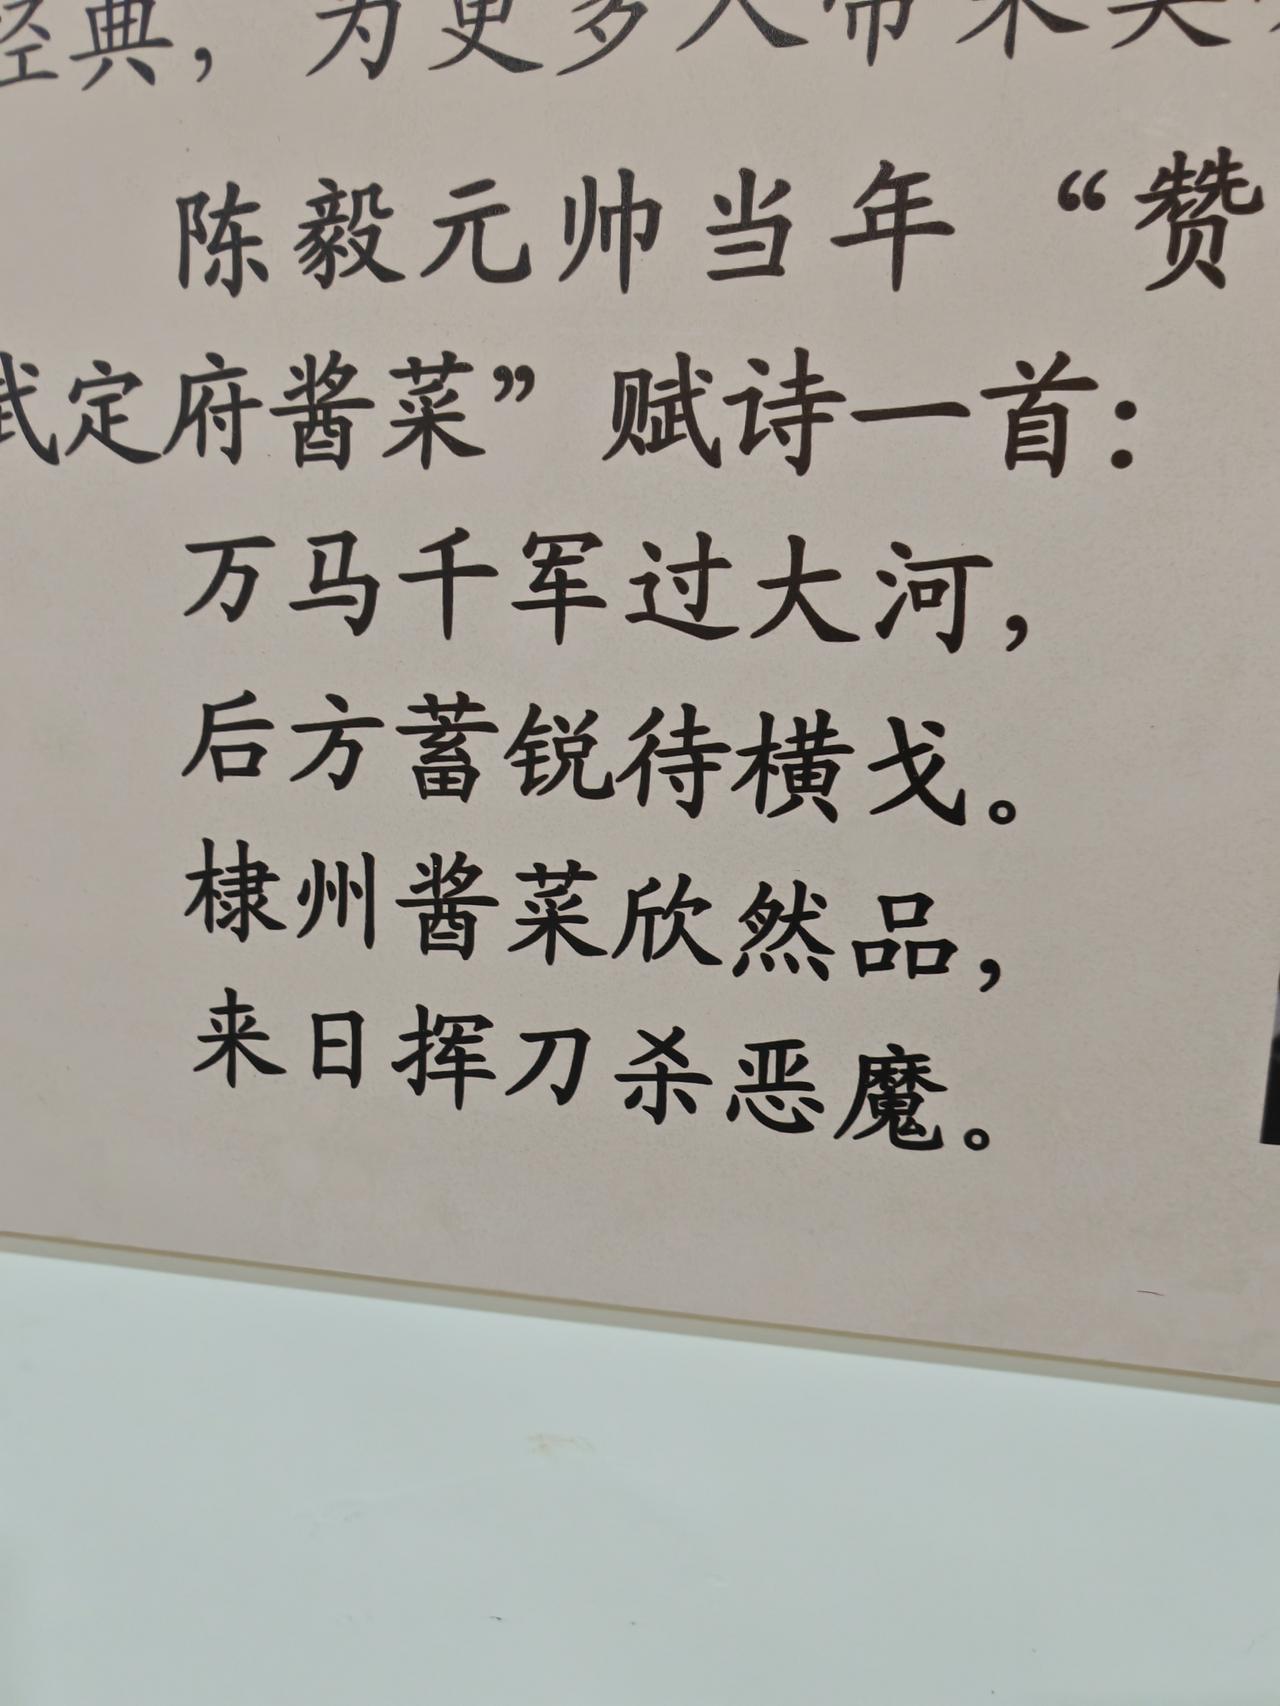 经典，为更多人带来美
陈毅元帅当年“赞
武定府酱菜”赋诗一首：
万马千军过大河，
后方蓄锐待横戈。
棣州酱菜欣然品，
来日挥刀杀恶魔。